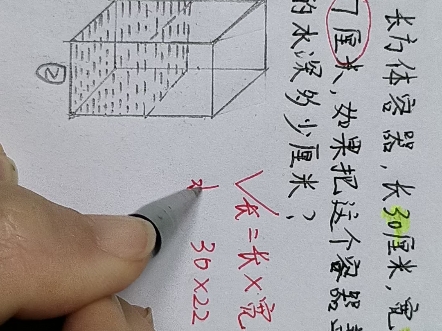 长方体容器，长30厘米，宽
7厘米，如果把这个容器
的水深多少厘米？
V长=长×宽
30×22
②